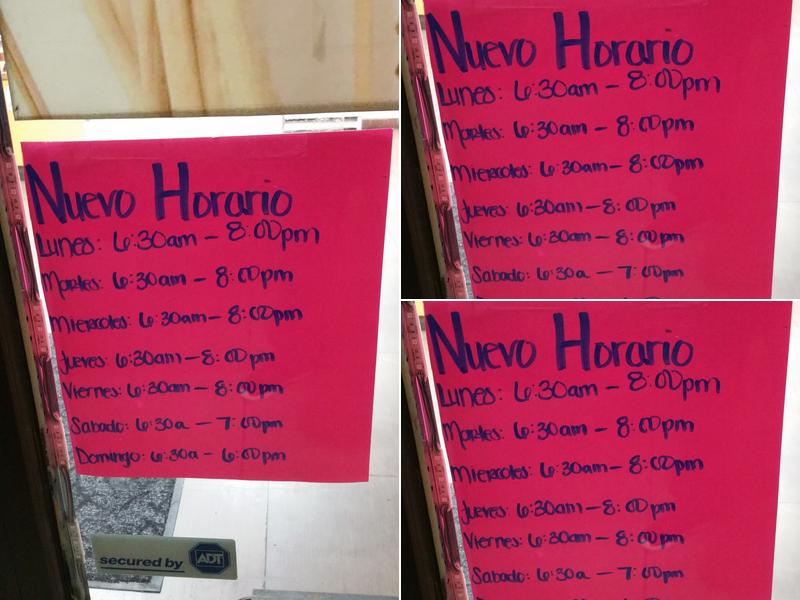 Nuevo Horario
Lunes: 6:30am - 8:00pm
Martes: 6:30am - 8:00pm
Miercoles: 6:30am - 8:00pm
Jueves: 6:30am - 8:00pm
Viernes: 6:30am - 8:00pm
Sabado: 6:30a - 7:00pm
Domingo: 6:30a - 6:00pm
secured by ADT
Nuevo Horario
Lunes: 6:30am - 8:00pm
Martes: 6:30am - 8:00pm
Miercoles: 6:30am - 8:00pm
Jueves: 6:30am - 8:00pm
Viernes: 6:30am - 8:00pm
Sabado: 6:30a - 7:00pm
Nuevo Horario
Lunes: 6:30am - 8:00pm
Martes: 6:30am - 8:00pm
Miercoles: 6:30am - 8:00pm
Jueves: 6:30am - 8:00pm
Viernes: 6:30am - 8:00pm
Sabado: 6:30a - 7:00pm